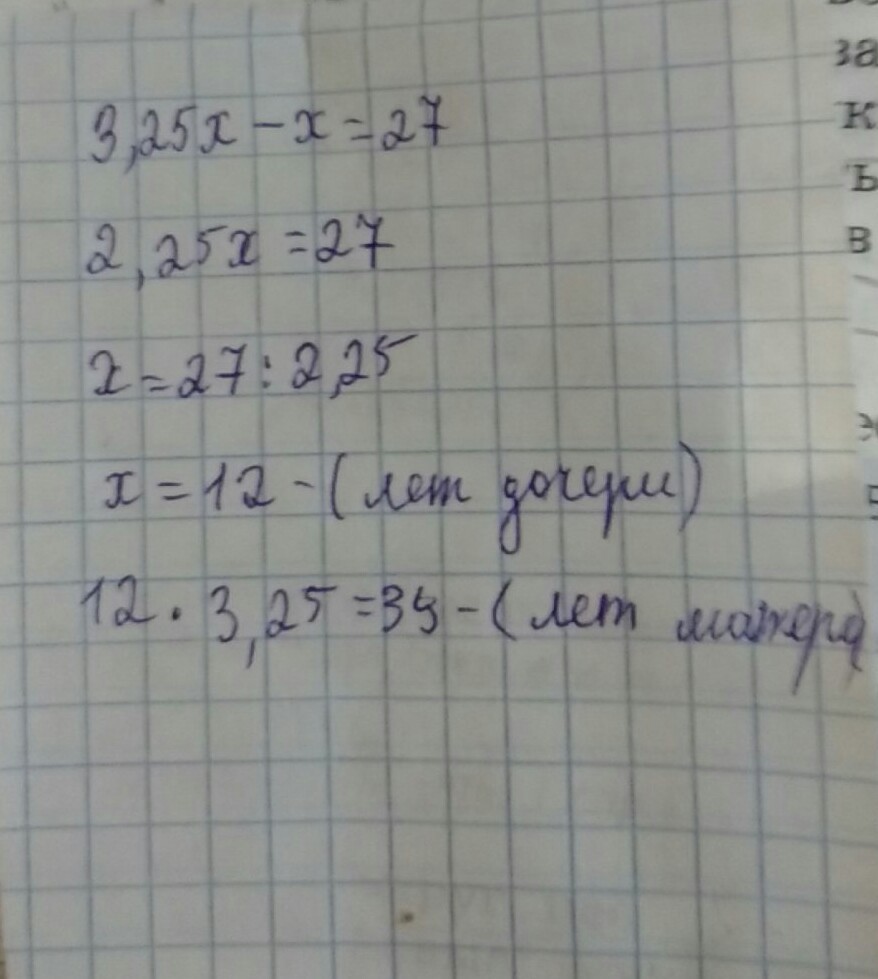 3,25x - x = 27
2,25x = 27
x = 27 : 2,25
x = 12 - (лет дочери)
12 . 3,25 = 39 - (лет матери)
за
к
ъ
в